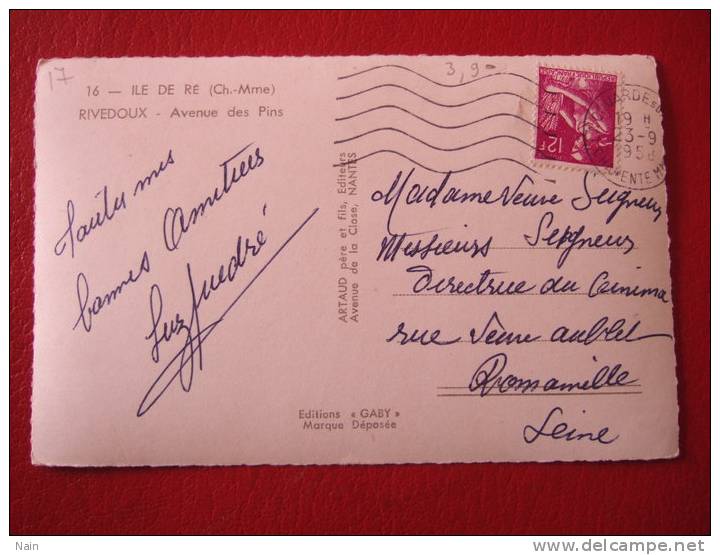 17
16 — ILE DE RÉ (Ch.-Mme)
RIVEDOUX - Avenue des Pins
3,9-
12F
19 H
23-9
195
Toutes mes
bonnes Amitiés
ARTAUD père et fils, Editeurs
Avenue de la Close, NANTES
Madame Veuve Seigneur
Messieurs Seigneur
Directrice du Cinima
rue Veuve aublet
Romainville
Seine
Editions « GABY »
Marque Déposée
Nain
www.delcampe.net